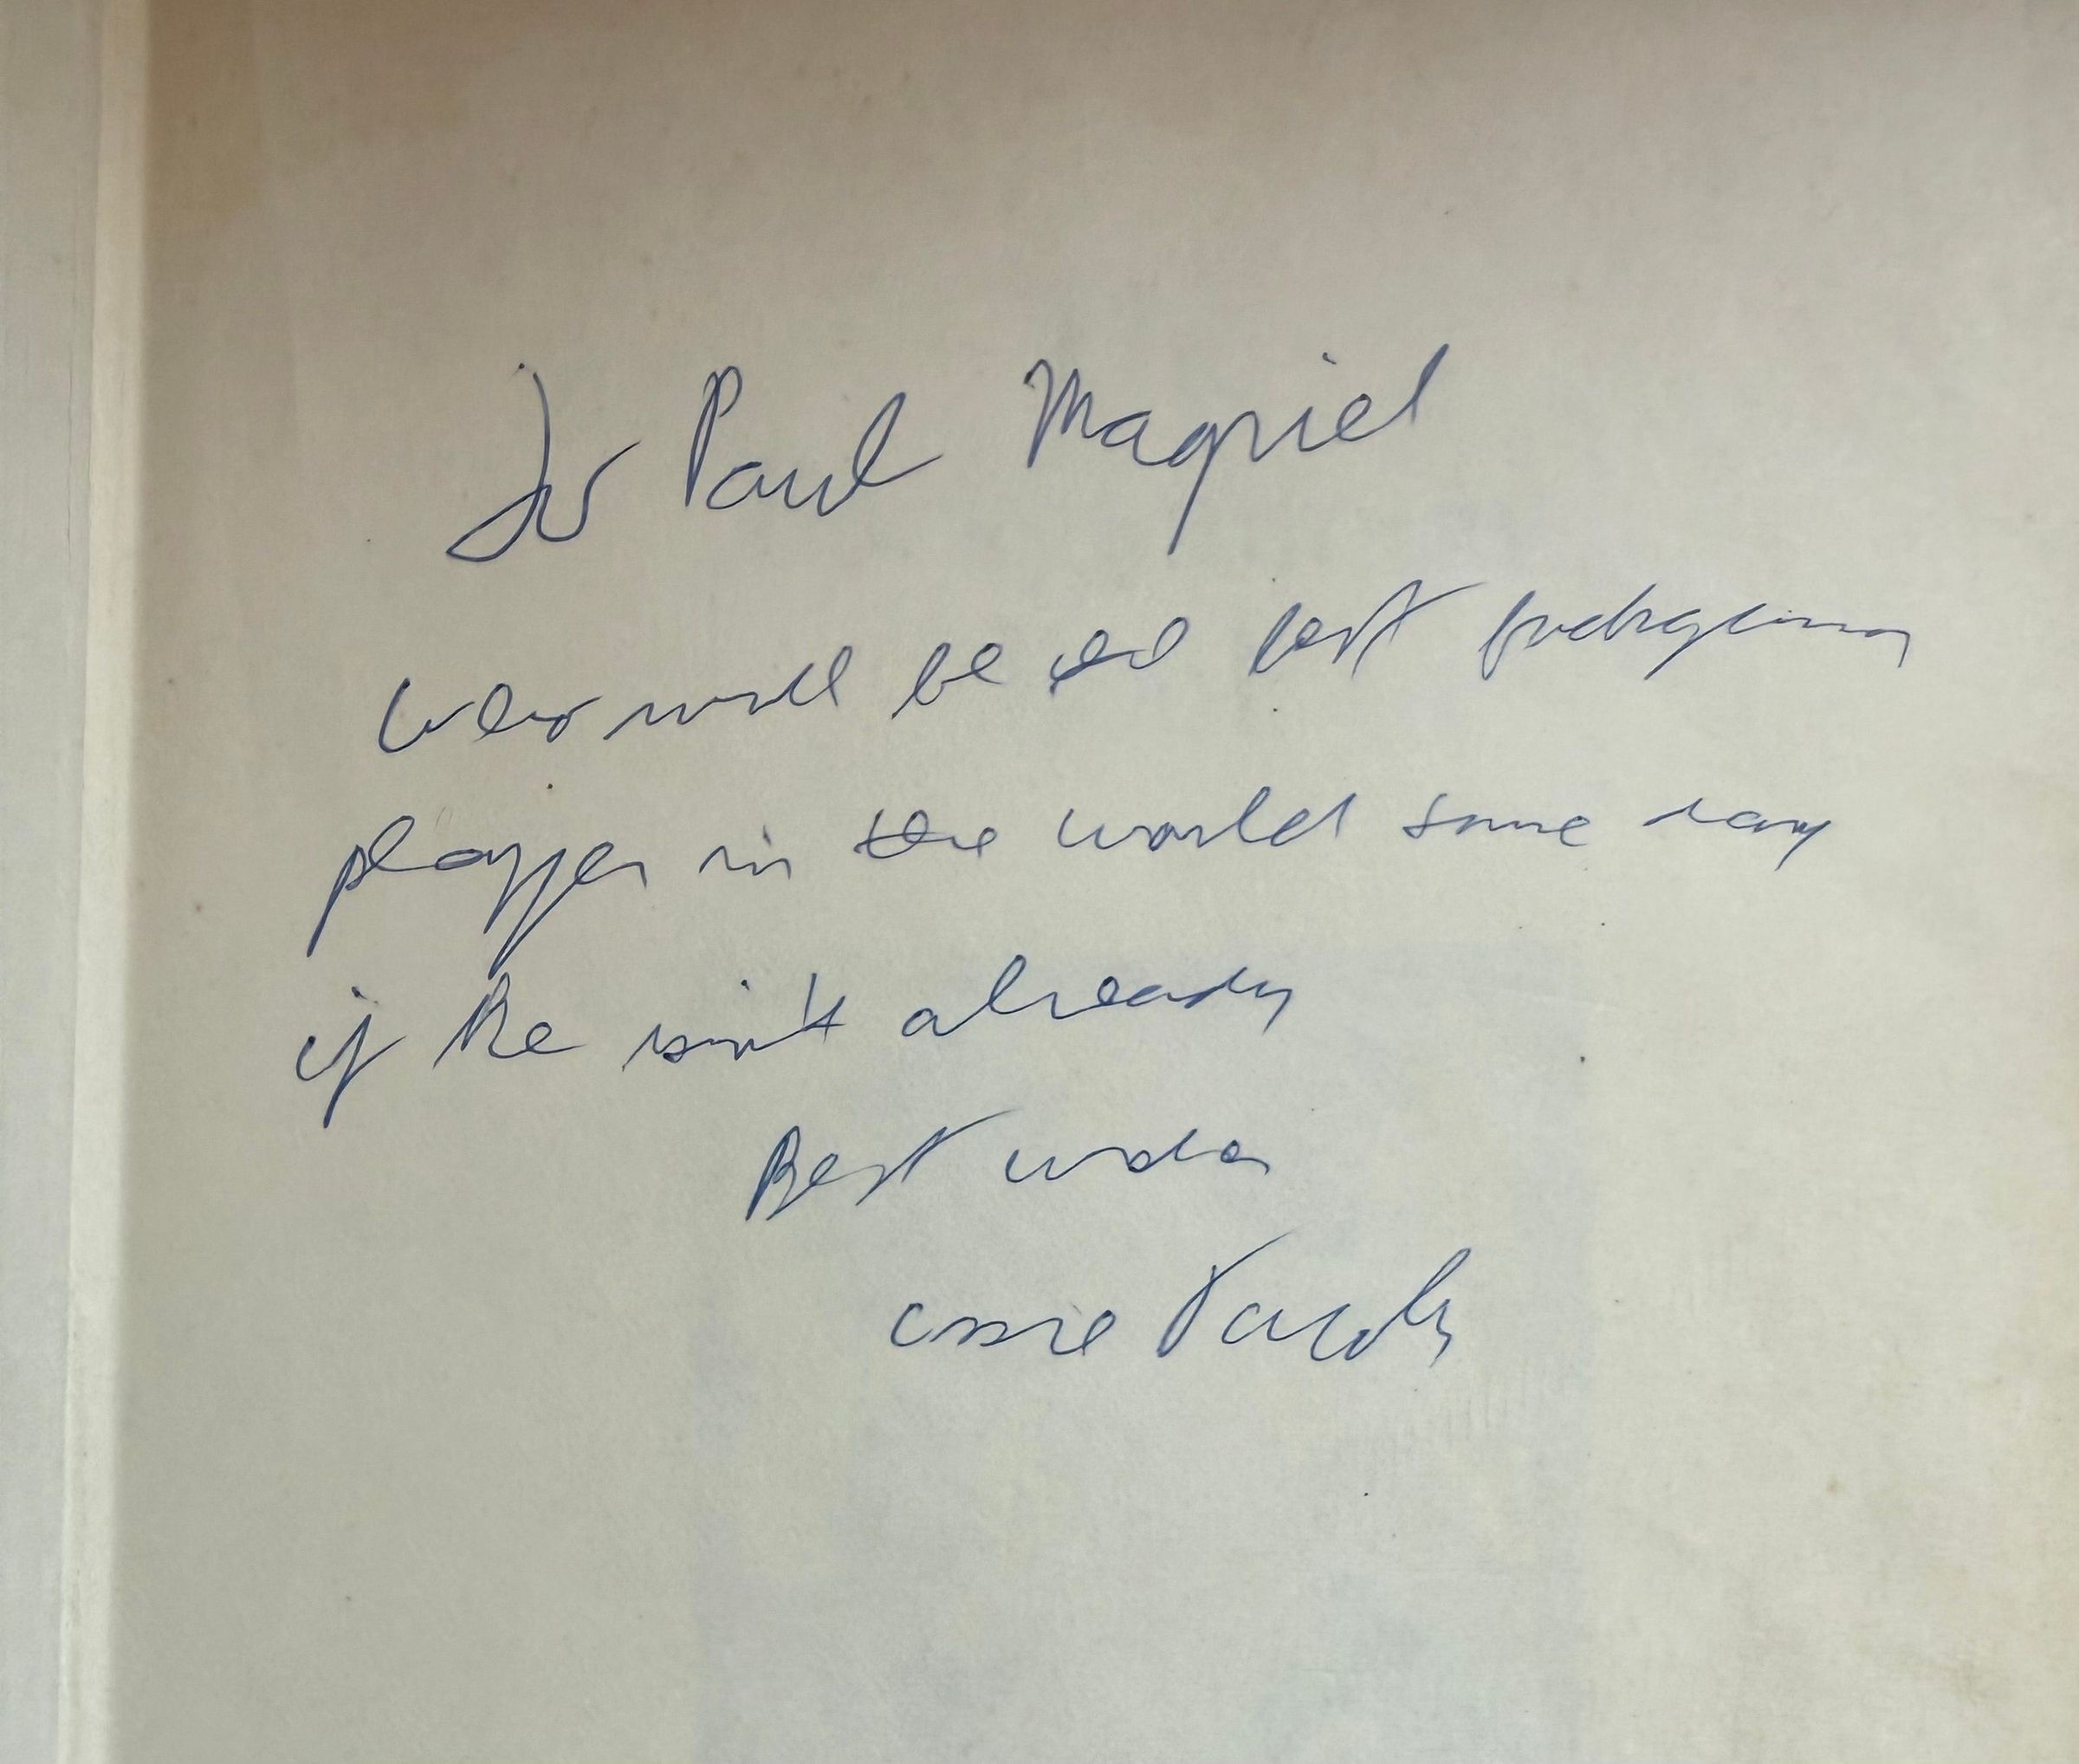 To Paul Magriel
who will be the best backgammon
player in the world some day
if he isn't already
Best wishes
Ossie Jacoby